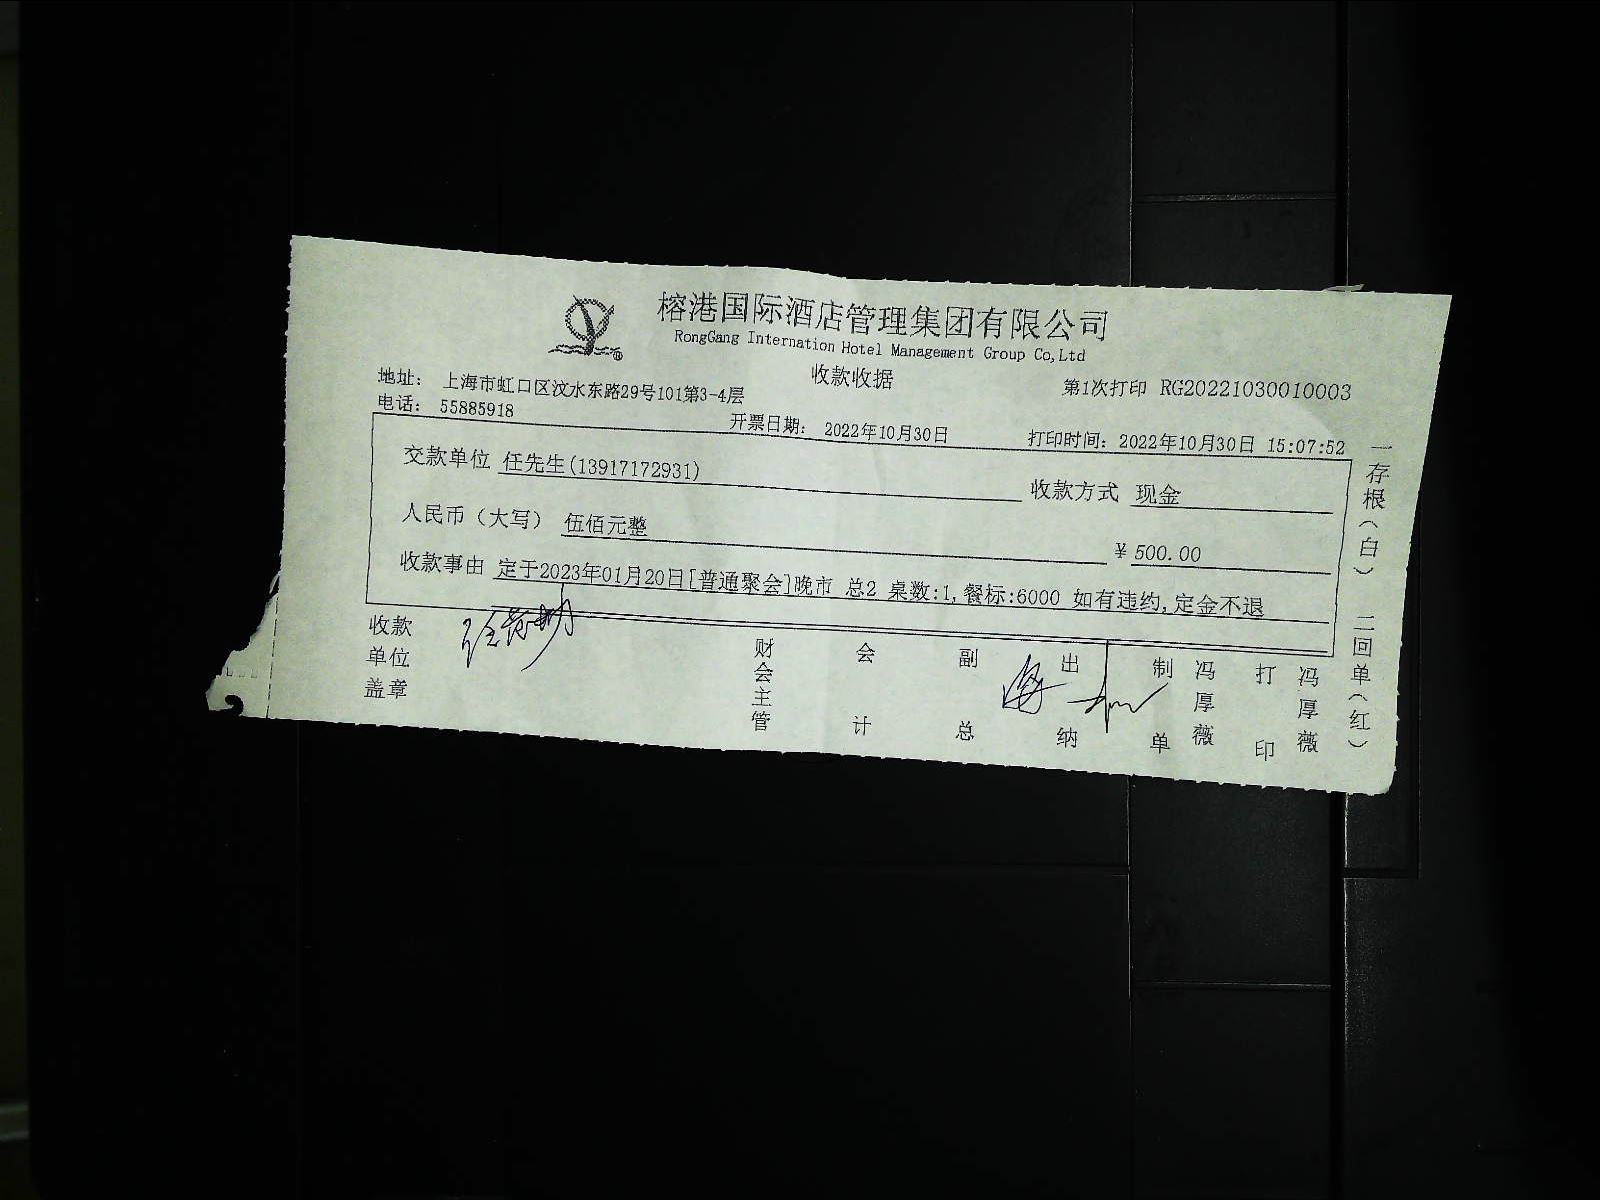 榕港国际酒店管理集团有限公司
RongGang Internation Hotel Management Group Co,Ltd
收款收据
第1次打印 RG20221030010003
地址： 上海市虹口区汶水东路29号101第3-4层
电话： 55885918
开票日期： 2022年10月30日
打印时间：2022年10月30日 15:07:52
交款单位 任先生(13917172931)
收款方式 现金
人民币（大写） 伍佰元整
￥500.00
收款事由 定于2023年01月20日[普通聚会]晚市 总2 桌数:1,餐标:6000 如有违约,定金不退
收款
单位
盖章
财会主管
会计
副总
出纳
制单
冯厚薇
打印
冯厚薇
一存根（白） 二回单（红）